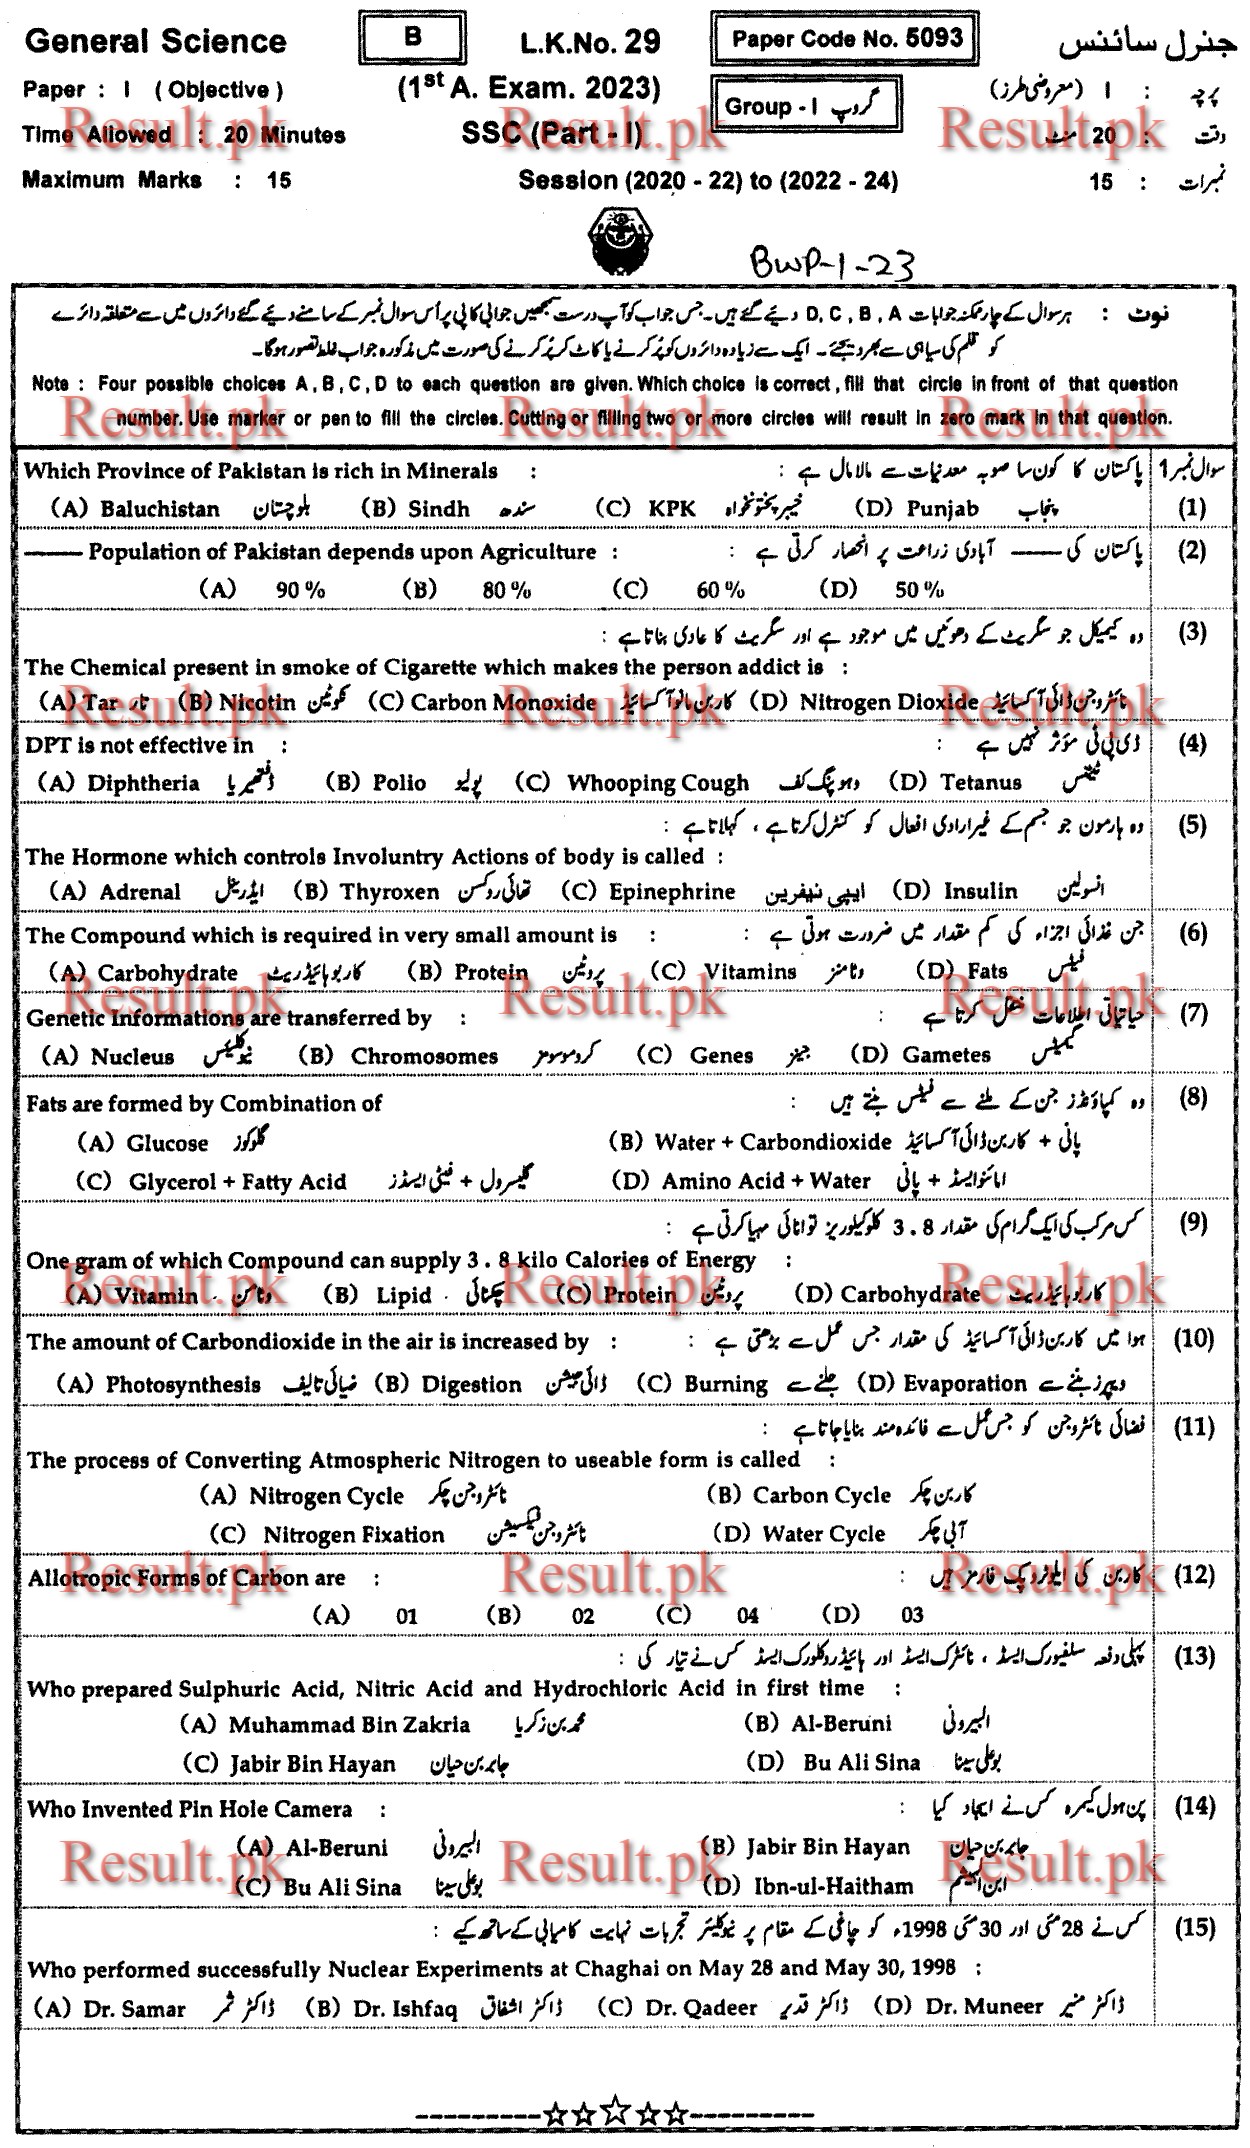 General Science B L.K.No. 29 Paper Code No. 5093 جنرل سائنس
Paper : I ( Objective ) (1st A. Exam. 2023) Group - I گروپ پرچہ : I (معروضی طرز)
Time Allowed : 20 Minutes SSC (Part - I) وقت : 20 منٹ
Maximum Marks : 15 Session (2020 - 22) to (2022 - 24) نمبرات : 15
BWP-1-23
نوٹ : ہر سوال کے چار ممکنہ جوابات D, C, B, A دیئے گئے ہیں۔ جس جواب کو آپ درست سمجھیں جوابی کاپی پر اُس سوال نمبر کے سامنے دیئے گئے دائروں میں سے متعلقہ دائرے
کو قلم کی سیاہی سے بھر دیجئے۔ ایک سے زیادہ دائروں کو پُر کرنے یا کاٹ کر پُر کرنے کی صورت میں مذکورہ جواب غلط تصور ہوگا۔
Note : Four possible choices A , B , C , D to each question are given. Which choice is correct , fill that circle in front of that question
number. Use marker or pen to fill the circles. Cutting or filling two or more circles will result in zero mark in that question.
Which Province of Pakistan is rich in Minerals : پاکستان کا کون سا صوبہ معدنیات سے مالا مال ہے : سوال نمبر 1
(A) Baluchistan بلوچستان (B) Sindh سندھ (C) KPK خیبر پختونخواہ (D) Punjab پنجاب (1)
—— Population of Pakistan depends upon Agriculture : پاکستان کی —— آبادی زراعت پر انحصار کرتی ہے : (2)
(A) 90 % (B) 80 % (C) 60 % (D) 50 %
وہ کیمیکل جو سگریٹ کے دھوئیں میں موجود ہے اور سگریٹ کا عادی بناتا ہے : (3)
The Chemical present in smoke of Cigarette which makes the person addict is :
(A) Tar تار (B) Nicotin نکوٹین (C) Carbon Monoxide کاربن مانو آکسائیڈ (D) Nitrogen Dioxide نائٹروجن ڈائی آکسائیڈ
DPT is not effective in : ڈی پی ٹی مؤثر نہیں ہے : (4)
(A) Diphtheria ڈفتھیریا (B) Polio پولیو (C) Whooping Cough وہوپنگ کف (D) Tetanus ٹیٹنس
وہ ہارمون جو جسم کے غیر ارادی افعال کو کنٹرل کرتا ہے ، کہلاتا ہے : (5)
The Hormone which controls Involuntry Actions of body is called :
(A) Adrenal ایڈرینل (B) Thyroxen تھائی روکسن (C) Epinephrine ایپی نیفرین (D) Insulin انسولین
The Compound which is required in very small amount is : جن غذائی اجزاء کی کم مقدار میں ضرورت ہوتی ہے : (6)
(A) Carbohydrate کاربوہائیڈریٹ (B) Protein پروٹین (C) Vitamins وٹامنز (D) Fats فیٹس
Genetic Informations are transferred by : حیاتیاتی اطلاعات منتقل کرتا ہے : (7)
(A) Nucleus نیوکلیئس (B) Chromosomes کروموسومز (C) Genes جینز (D) Gametes گیمیٹس
Fats are formed by Combination of وہ کمپاؤنڈز جن کے ملنے سے فیٹس بنتے ہیں : (8)
(A) Glucose گلوکوز (B) Water + Carbondioxide پانی + کاربن ڈائی آکسائیڈ
(C) Glycerol + Fatty Acid گلیسرول + فیٹی ایسڈز (D) Amino Acid + Water امائنو ایسڈ + پانی
کس مرکب کی ایک گرام کی مقدار 3 . 8 کلو کیلوریز توانائی مہیا کرتی ہے : (9)
One gram of which Compound can supply 3 . 8 kilo Calories of Energy :
(A) Vitamin وٹامن (B) Lipid چکنائی (C) Protein پروٹین (D) Carbohydrate کاربوہائیڈریٹ
The amount of Carbondioxide in the air is increased by : ہوا میں کاربن ڈائی آکسائیڈ کی مقدار جس عمل سے بڑھتی ہے : (10)
(A) Photosynthesis ضیائی تالیف (B) Digestion ڈائی جیشن (C) Burning جلنے سے (D) Evaporation ویپرز بننے سے
فضائی نائٹروجن کو جس عمل سے فائدہ مند بنایا جاتا ہے : (11)
The process of Converting Atmospheric Nitrogen to useable form is called :
(A) Nitrogen Cycle نائٹروجن چکر (B) Carbon Cycle کاربن چکر
(C) Nitrogen Fixation نائٹروجن فیکسیشن (D) Water Cycle آبی چکر
Allotropic Forms of Carbon are : کاربن کی ایلوٹروپک فارمز ہیں : (12)
(A) 01 (B) 02 (C) 04 (D) 03
پہلی دفعہ سلفیورک ایسڈ ، نائٹرک ایسڈ اور ہائیڈروکلورک ایسڈ کس نے تیار کی : (13)
Who prepared Sulphuric Acid, Nitric Acid and Hydrochloric Acid in first time :
(A) Muhammad Bin Zakria محمد بن زکریا (B) Al-Beruni البیرونی
(C) Jabir Bin Hayan جابر بن حیان (D) Bu Ali Sina بوعلی سینا
Who Invented Pin Hole Camera : پن ہول کیمرہ کس نے ایجاد کیا : (14)
(A) Al-Beruni البیرونی (B) Jabir Bin Hayan جابر بن حیان
(C) Bu Ali Sina بوعلی سینا (D) Ibn-ul-Haitham ابن الہیثم
کس نے 28 مئی اور 30 مئی 1998ء کو چاغی کے مقام پر نیوکلیئر تجربات نہایت کامیابی کے ساتھ کیے : (15)
Who performed successfully Nuclear Experiments at Chaghai on May 28 and May 30, 1998 :
(A) Dr. Samar ڈاکٹر ثمر (B) Dr. Ishfaq ڈاکٹر اشفاق (C) Dr. Qadeer ڈاکٹر قدیر (D) Dr. Muneer ڈاکٹر منیر